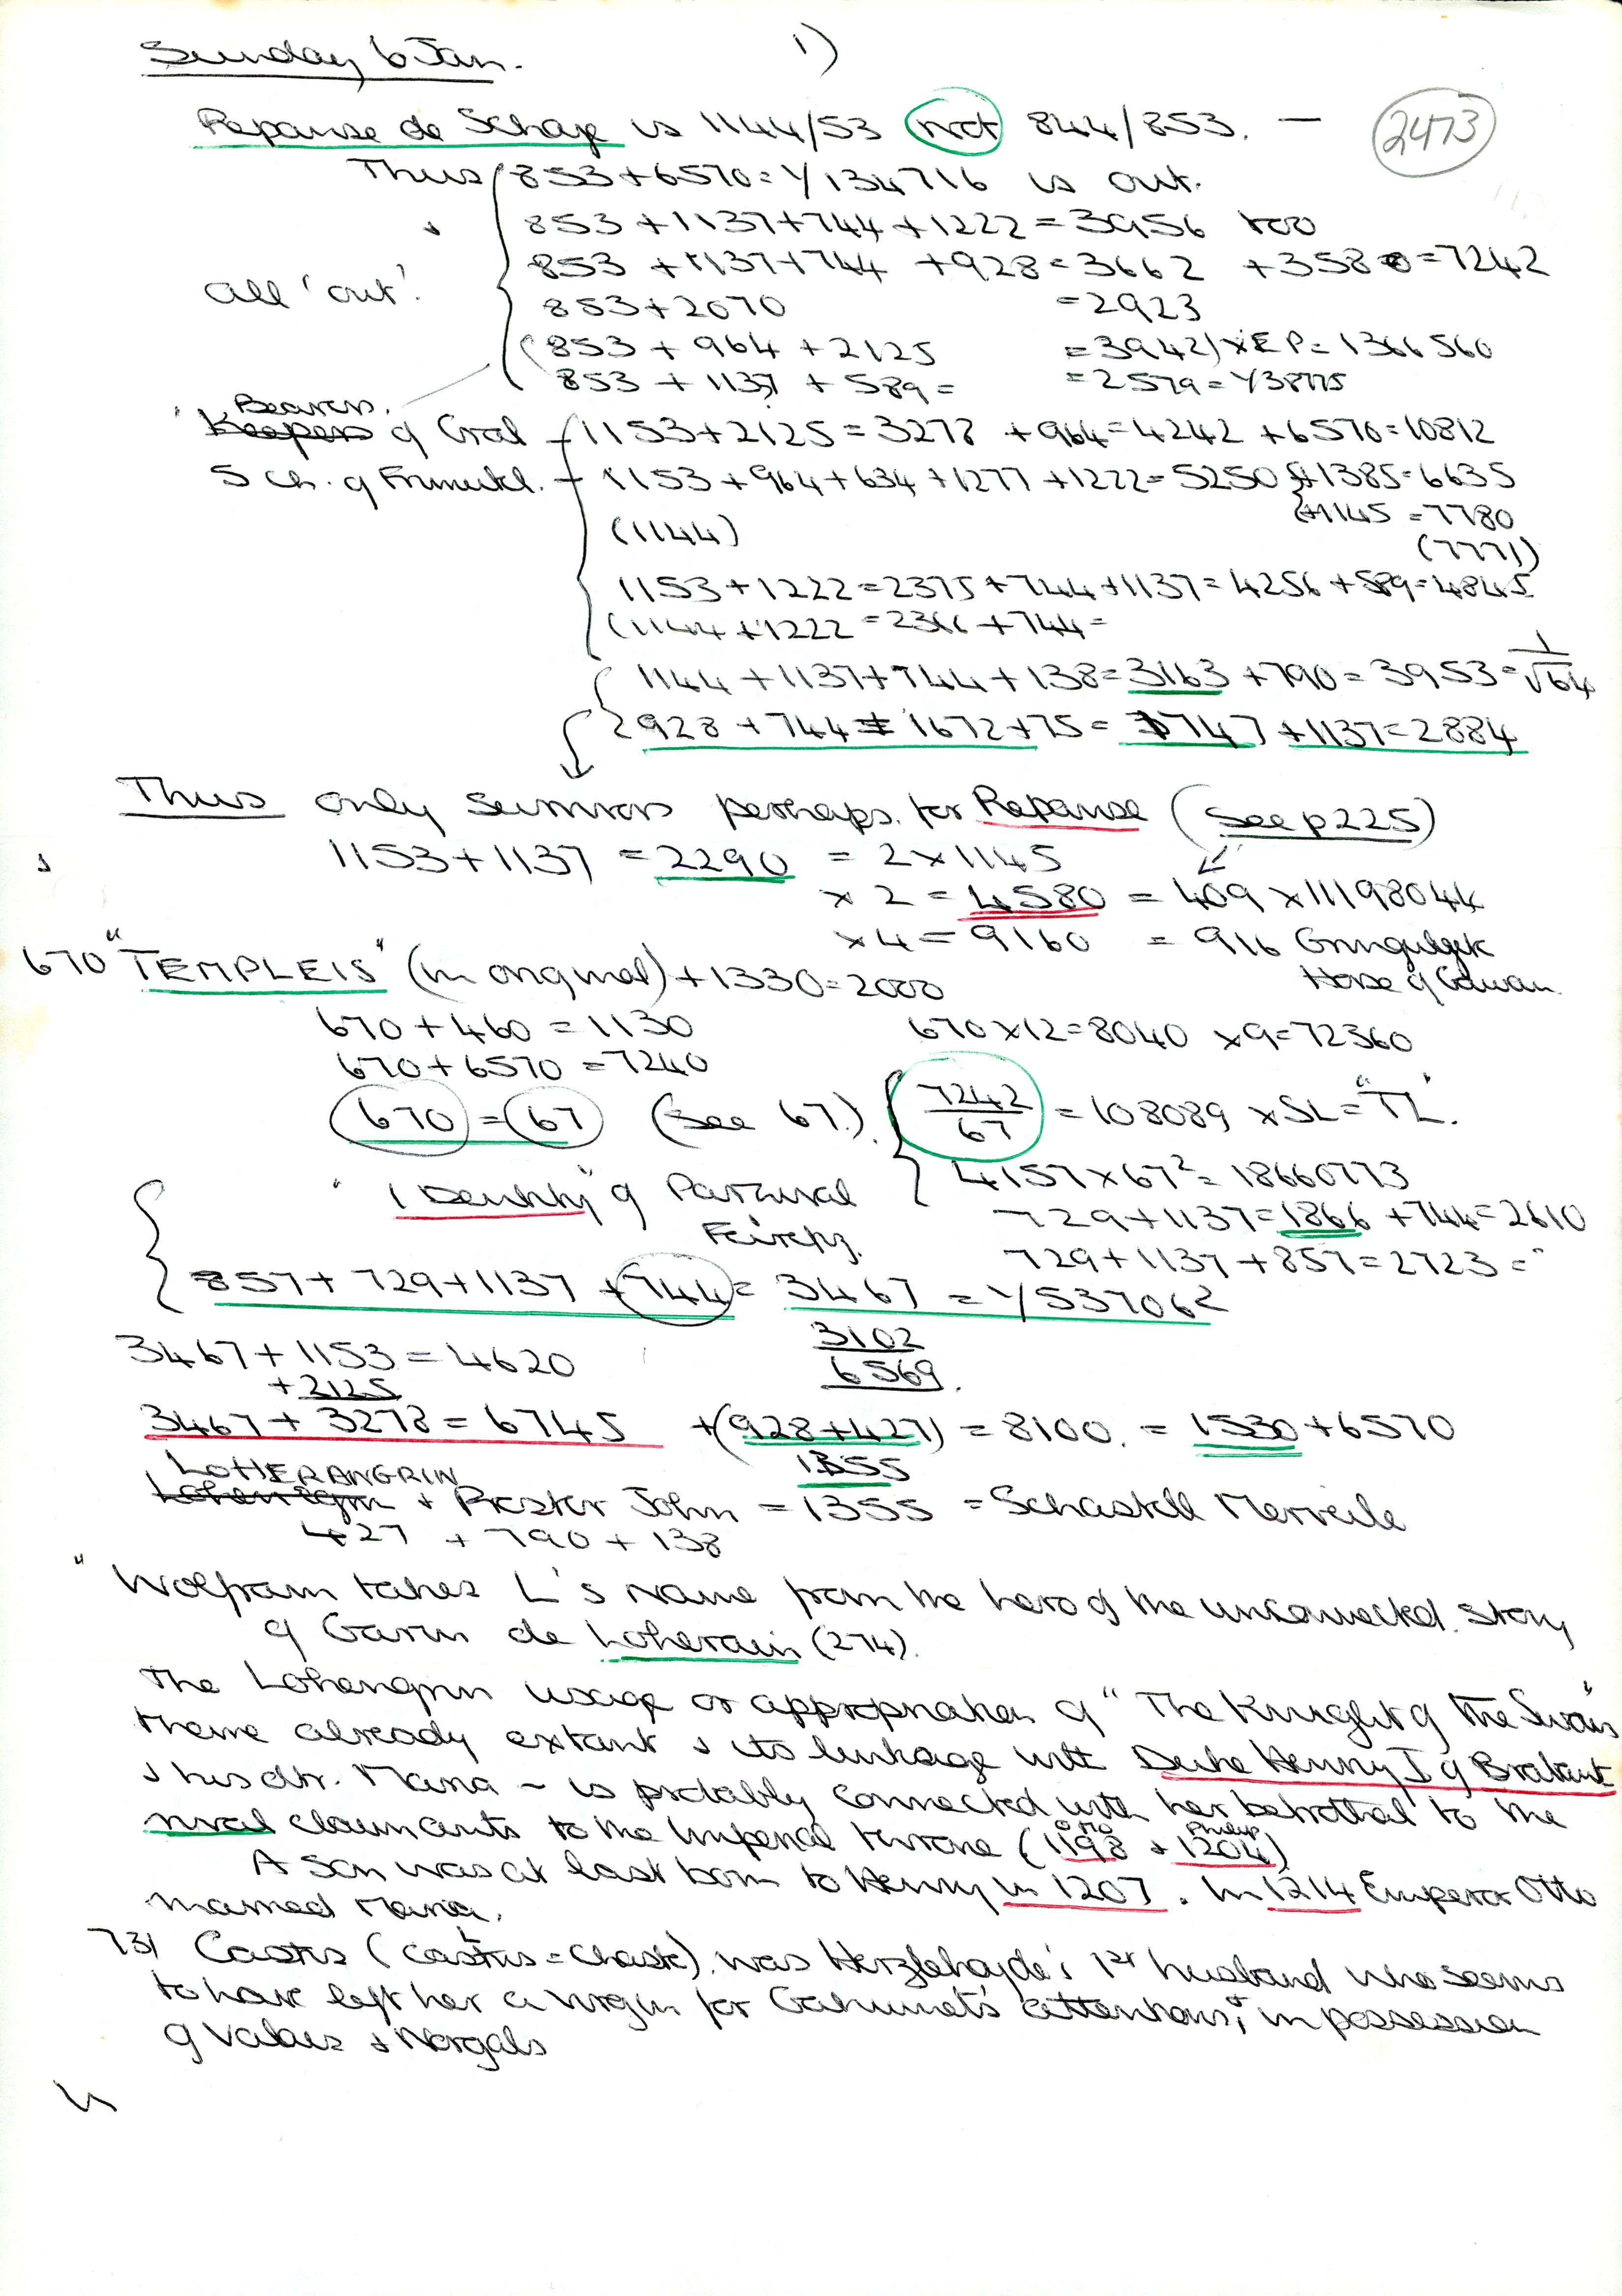 Sunday 6 Jan. 1)
Repanse de Schoye is 1144/53 not 844/853. — 2473
Thus 853+6570=1/134716 is out.
853+1137+744+1222=3956 too
853+1137+744 +928=3662 +3580=7242
All 'out'.
853+2070 =2923
(853+964+2125 =3942) x EP=1366560
853+1137+589= =2579=1/38775
Bearers
Keepers of Gral 1153+2125=3278 +964=4242 +6570=10812
5 Ch. of Frimutel. 1153+964+634+1277+1222=5250 +1385=6635
+1145=7780
(1144) (7771)
1153+1222=2375+744+1137=4256+589=4845
(1144+1222=2366+744=
1144+1137+744+138=3163+790=3953=1/√64
928+744=1672+75=1747+1137=2884
Thus only survivors perhaps for Repanse (see p225)
1153+1137=2290=2x1145
x2=4580=409x11198044
x4=9160=916 Gringuljet
Horse of Gawan.
670 "TEMPLEIS" (in original)+1330=2000
670+460=1130 670x12=8040 x9=72360
670+6570=7240
670=67 (see 67.) 7242/67=108089 xSL="TL".
4157x67²=18660773
"Identity" of Parzival
Feirefiz.
729+1137=1866+744=2610
729+1137+857=2723="
857+729+1137+744=3467=1/53706²
3102
6569.
3467+1153=4620
+2125
3467+3278=6745 +(928+427)=8100.=1530+6570
1355
LOHERANGRIN
Lohengrin + Prester John=1355=Schastell Merveile
427+790+138
"Wolfram takes L's name from the hero of the unconnected story
of Garin de Loherain (274).
The Lohengrin usage or appropriation of "The Knight of the Swan"
theme already extant & its linkage with Duke Henry I of Brabant
& his dtr. Maria - is probably connected with her betrothal to the
rival claimants to the Imperial throne (1198 & 1204)
Otto Philip
A son was at last born to Henry in 1207. In 1214 Emperor Otto
married Maria.
731 Castis (castus=chaste). was Herzeloyde's 1st husband who seems
to have left her a virgin for Gahmuret's attentions, & in possession
of Valais & Norgals